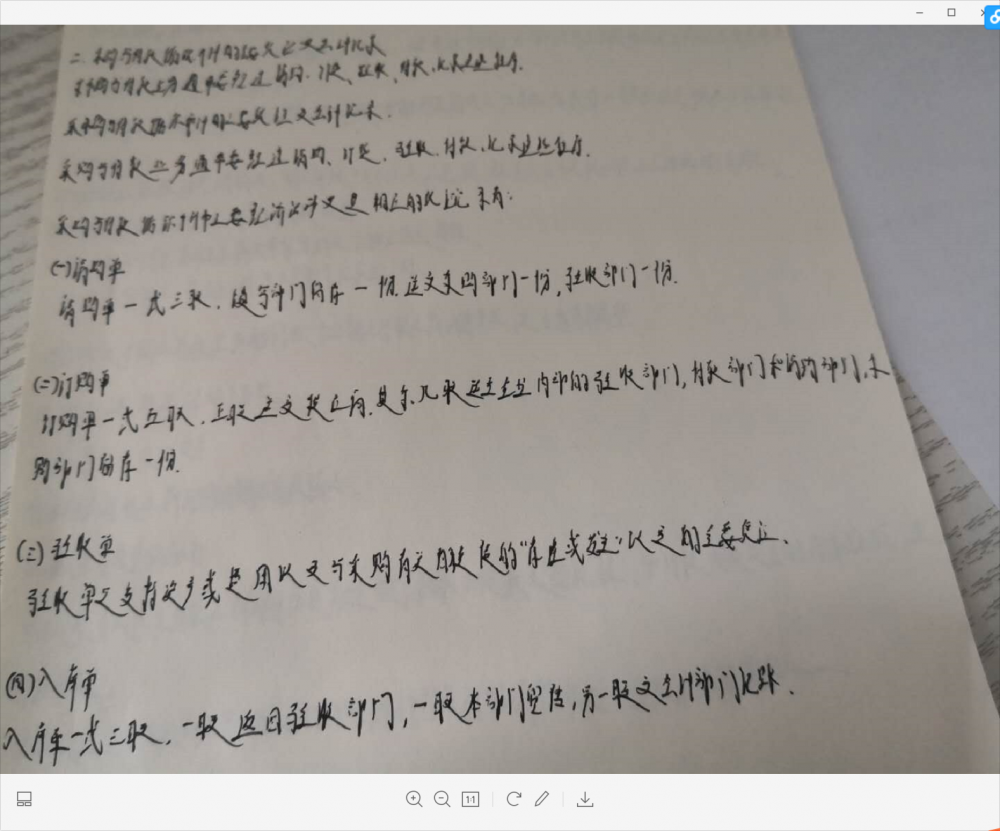 二、采购与付款循环中的主要凭证及会计记录
采购与付款业务通常要经过请购、订货、验收、付款、记录这些程序。
采购与付款循环中的主要凭证及会计记录。
采购与付款业务通常要经过请购、订货、验收、付款、记录这些程序。
采购与付款循环中主要经济业务凭证
(一)请购单
请购单一式三联，填写部门留存一份，送交采购部门一份，验收部门一份。
(二)订购单
订购单一式五联，正联送交供应商，其余几联送至企业内部的验收部门，付款部门和请购部门，采
购部门留存一份。
(三)验收单
验收单是支持资产或费用以及与采购有关的负债的“存在或发生”认定的主要凭证。
(四)入库单
入库单一式三联，一联返回验收部门，一联本部门留存，另一联交会计部门记账。
1:1